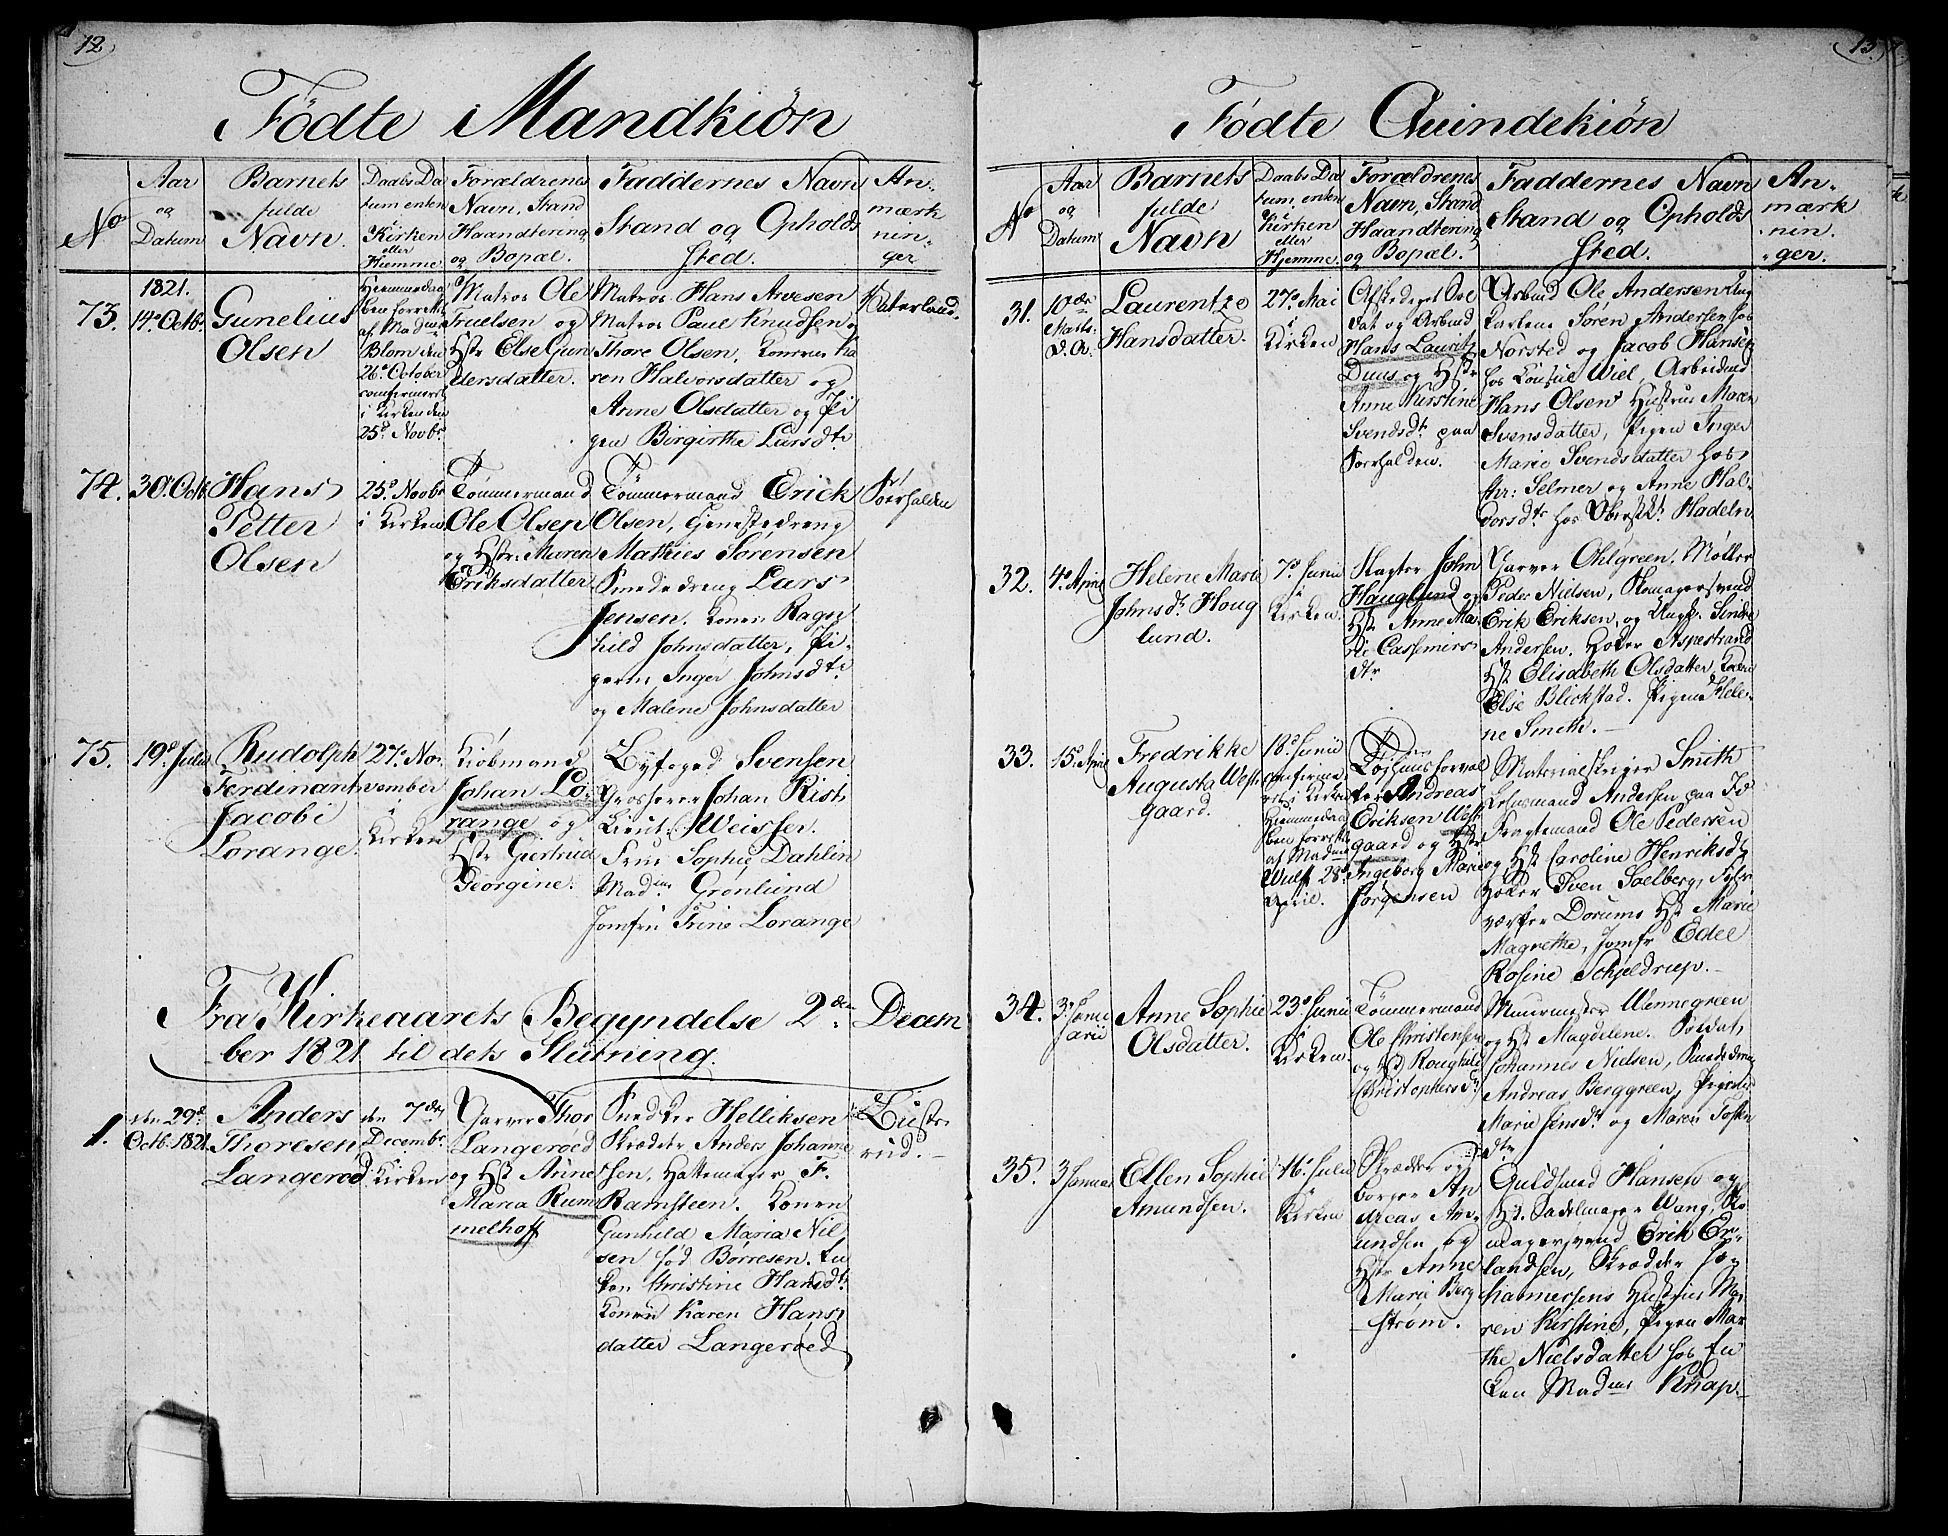 12
Födte Mandkiön
No
Aar
og
Datum
Barnets
fulde
Navn.
Daabs Da
tum enten
i
Kirken
eller
Hiemme
Forældrenes
Navn, Stand
Haandtering
og Bopæl.
Faddernes Navn
Stand og Opholds
Sted.
An-
mærk
nin-
ger
1821.
73.
14de Octbr.
Gunelius
Olsen
Hiemmedaa
ben forrettet
af Madme
Blom den
26de October
confirmeret
i Kirken den
25de Novbr.
Matros Ole
Truelsen og
Hstr Else Gun
dersdatter.
Matros Hans Arvesen
Matros Paul Knudsen og
Thore Olsen, Konen Ka
ren Halvorsdatter og
Anne Olsdatter og Pi
gen Birgithe Larsdtr
Waterland.
74.
30. Octb.
Hans
Petter
Olsen
25de Novbr
i Kirken
Tömmermand
Ole Olsen
og Hstr. Maren
Eriksdatter
Tömmermand Erick
Olsen, Tjenestedreng
Mathies Sörensen
Smededreng Lars
Jensen. Konen Ragn
hild Johnsdatter, Pi-
gerne Inger Johnsdtr
og Malene Johnsdatter
Norhalden
75.
19de Julii
Rudolph
Ferdinant
Jacobi
Lorange.
27de No-
vember
i
Kirken
Kiöbmand
Johan Lo-
range og
Hstr Giertrud
Georgine.
Byfoged Svensen
Grosserer Johan Rist
Lieut: Weisser.
Frue Sophie Dahlin
Madme Grönlund
Jomfru Trine Lorange
Fra Kirkeaarets Begyndelse 2den Decem
ber 1821 til dets Slutning.
1.
den 29de
Octb. 1821.
Anders
Thoresen
Langeröd
den 7den
Decembr.
i Kirken
Garver Thor
Langeröed
og Hst Anne
Maria Rum
melhoff
Snedker Helliksen
Skræder Anders Johanne
sen, Hattemager F.
Ramsteen. Konen
Gunhild Maria Nil
sen föd Börresen. En
ken Christine Hansdtr
Konen Karen Hans
datter Langeröed
Buste-
rud.
13.
Födte Quindekiön
No
Aar
og
Datum
Barnets
fulde
Navn
Daabs Da
tum, enten
i Kirken
eller
Hjemme.
Forældrenes
Navn, Stand
Haandtering
og Bopæl.
Faddernes Navn
Stand og Opholds
Sted.
An-
mærk
nin-
ger.
31.
10de
Marts.
d. A.
Laurentze
Hansdatter.
27de Mai
i
Kirken
Afskediget Sol
dat og Arbmd
Hans Lauritz
Duus og Hstr
Anne Kirstine
Svendsdtr paa
Norhalden.
Arbmd Ole Andersen Ung
karlene Sören Andersen hos
Norsted og Jacob Hansen
hos Consul Wiel, Arbeidsmd
Hans Olsens Hustrue Maren
Svensdatter, Pigen Inger
Marie Svendsdatter hos
Chr: Selmer og Anne Hal-
vorsdtr hos Oberstlt Hadeln
32.
4de April
Helene Marie
Johnsdtr Houg
lund.
7de Junii
i
Kirken.
Slagter John
Hauglund og
Hst Anne Ma-
rie Cassemirs
dtr
Garver Ohlgreen, Møller
Peder Nielsen, Skomagersvend
Erik Eriksen, og Ungk. Sindre
Andersen. Höker Aspestrand
Hst Elisabeth Olsdatter, Konen
Else Blickstad. Pigen Hele-
ne Smith.
33.
15de April
Fredrikke
Augusta West
gaard.
18de Junii
confirme
ret i Kirken
Hiemmedaa
ben forrettet
af Madme
Wulf 28de
April.
Töjhuusforval
ter Andreas
Eriksen West
gaard og Hstr
Ingeborg Marie
Jörgensen
Materialskriver Smith
Lehnsmand Andersen paa Id
Fragtemand Ole Pedersen
og Hst Caroline Henriksdtr
Höker Sven Solberg, Tolv
værter Dorums Hst Marie
Magrethe, Jomfr Edel
Rosine Schjeldrup.
34.
3de Janu
arii
Anne Sophie
Olsdatter.
23de Junii
i
Kirken.
Tömmermand
Ole Christensen
og Hst Ronghild
Christophersdtr
Muurmester Wennegreen
og Hst Magdelene. Soldat
Johannes Nielsen, Smededreng
Andreas Berggreen, Pigerne
Marie Jensdtr og Maren Tosten
dtr
35.
3 Januar
Ellen Sophie
Amundsen.
16de Julii
i
Kirken
Skrædder og
borger An
dreas Am-
undsen og
Hstr Anne
Marie Berg
ström.
Guldsmed Hansen og
Hst. Sadelmager Wang, Sko
magersvend Erik Er-
landsen, Skrædder
Halmersens Hustrue Ma-
ren Kirstine, Pigen Mar
the Nielsdatter hos En
ken Madme Knap.